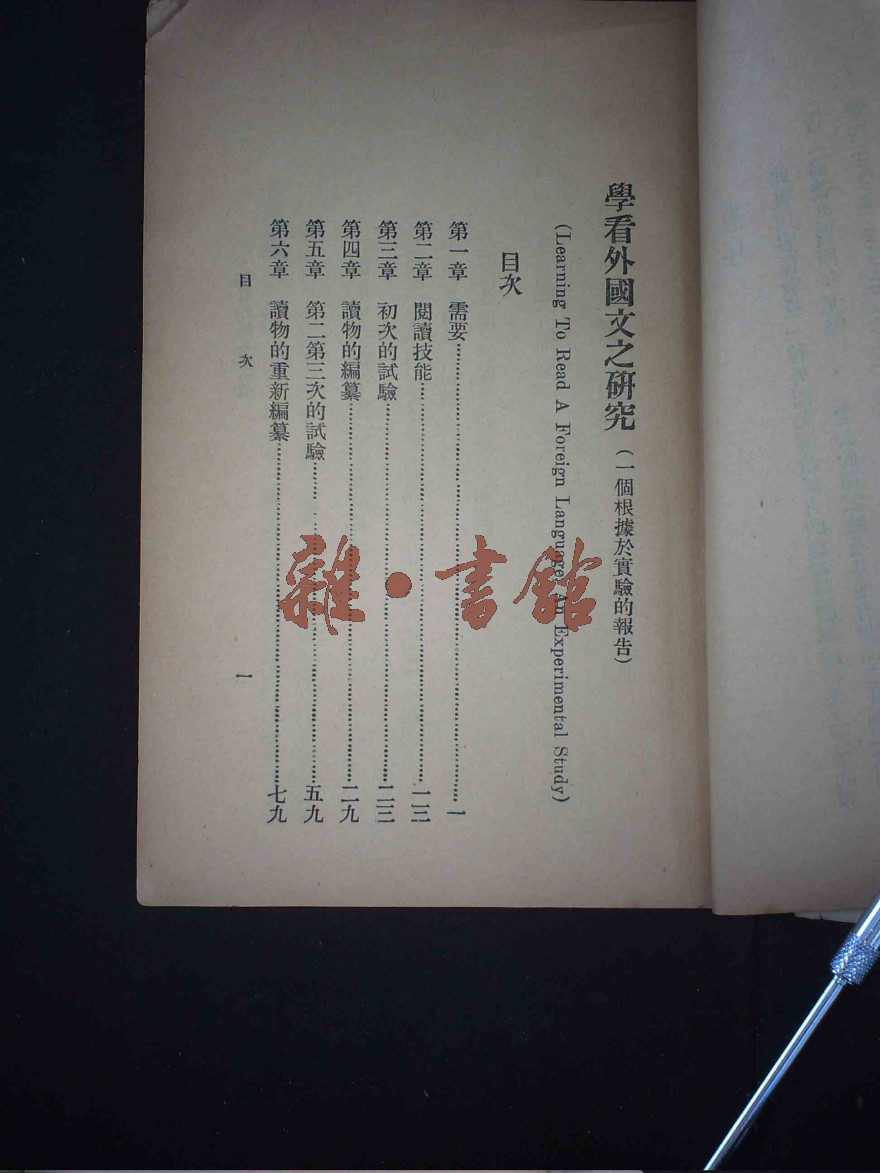 學看外國文之研究（一個根據於實驗的報告）
(Learning To Read A Foreign Language, An Experimental Study)
目次
第一章 需要……一
第二章 閱讀技能……一三
第三章 初次的試驗……二三
第四章 讀物的編纂……二九
第五章 第二第三次的試驗……五九
第六章 讀物的重新編纂……七九
目次 一
雜·書館